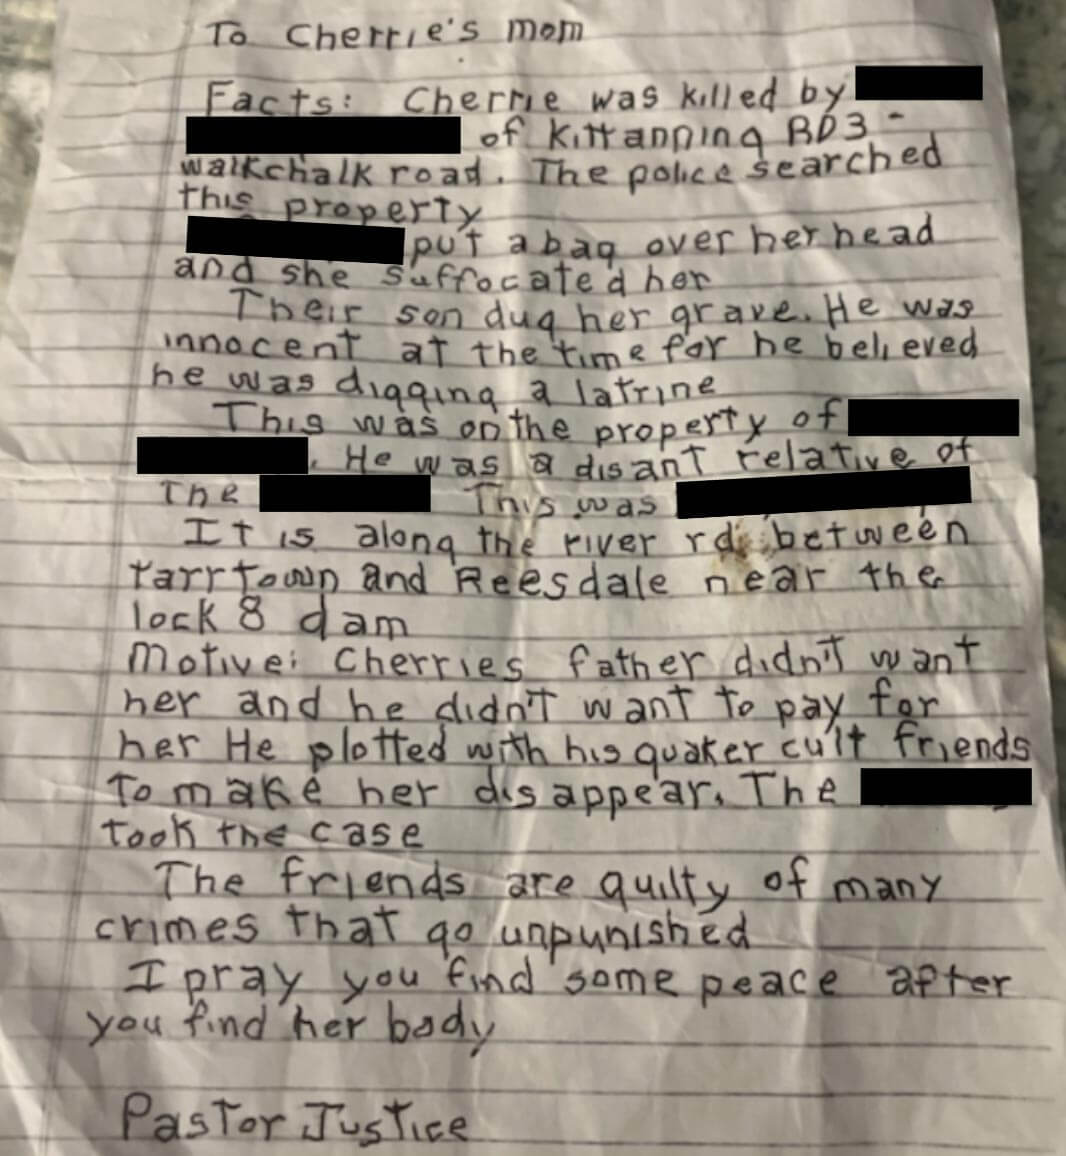 To Cherrie's mom
Facts: Cherrie was killed by
of Kittanning RD3 -
walkchalk road. The police searched
this property
put a bag over her head
and she suffocated her
Their son dug her grave. He was
innocent at the time for he believed
he was digging a latrine
This was on the property of
. He was a disant relative of
The This was
It is along the river rd between
Tarrtown and Reesdale near the
lock 8 dam
Motive: Cherries father didn't want
her and he didn't want to pay for
her He plotted with his quaker cult friends
To make her disappear. The
took the case
The friends are guilty of many
crimes that go unpunished
I pray you find some peace after
you find her body
Pastor Justice